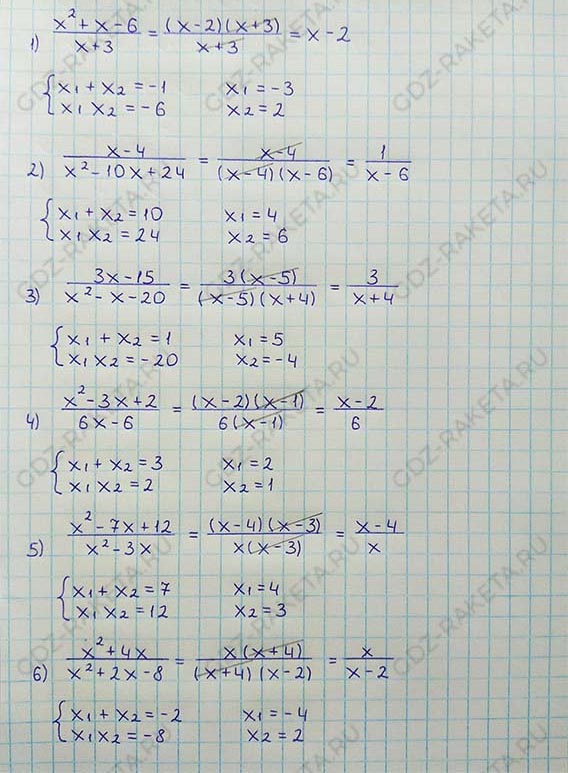 1) (x² + x - 6)/(x+3) = ((x-2)(x+3))/(x+3) = x - 2
{x₁ + x₂ = -1 x₁ = -3
x₁x₂ = -6 x₂ = 2
2) (x-4)/(x² - 10x + 24) = (x-4)/((x-4)(x-6)) = 1/(x-6)
{x₁ + x₂ = 10 x₁ = 4
x₁x₂ = 24 x₂ = 6
3) (3x-15)/(x² - x - 20) = (3(x-5))/((x-5)(x+4)) = 3/(x+4)
{x₁ + x₂ = 1 x₁ = 5
x₁x₂ = -20 x₂ = -4
4) (x² - 3x + 2)/(6x-6) = ((x-2)(x-1))/(6(x-1)) = (x-2)/6
{x₁ + x₂ = 3 x₁ = 2
x₁x₂ = 2 x₂ = 1
5) (x² - 7x + 12)/(x² - 3x) = ((x-4)(x-3))/(x(x-3)) = (x-4)/x
{x₁ + x₂ = 7 x₁ = 4
x₁x₂ = 12 x₂ = 3
6) (x² + 4x)/(x² + 2x - 8) = (x(x+4))/((x+4)(x-2)) = x/(x-2)
{x₁ + x₂ = -2 x₁ = -4
x₁x₂ = -8 x₂ = 2
GDZ-RAKETA.RU